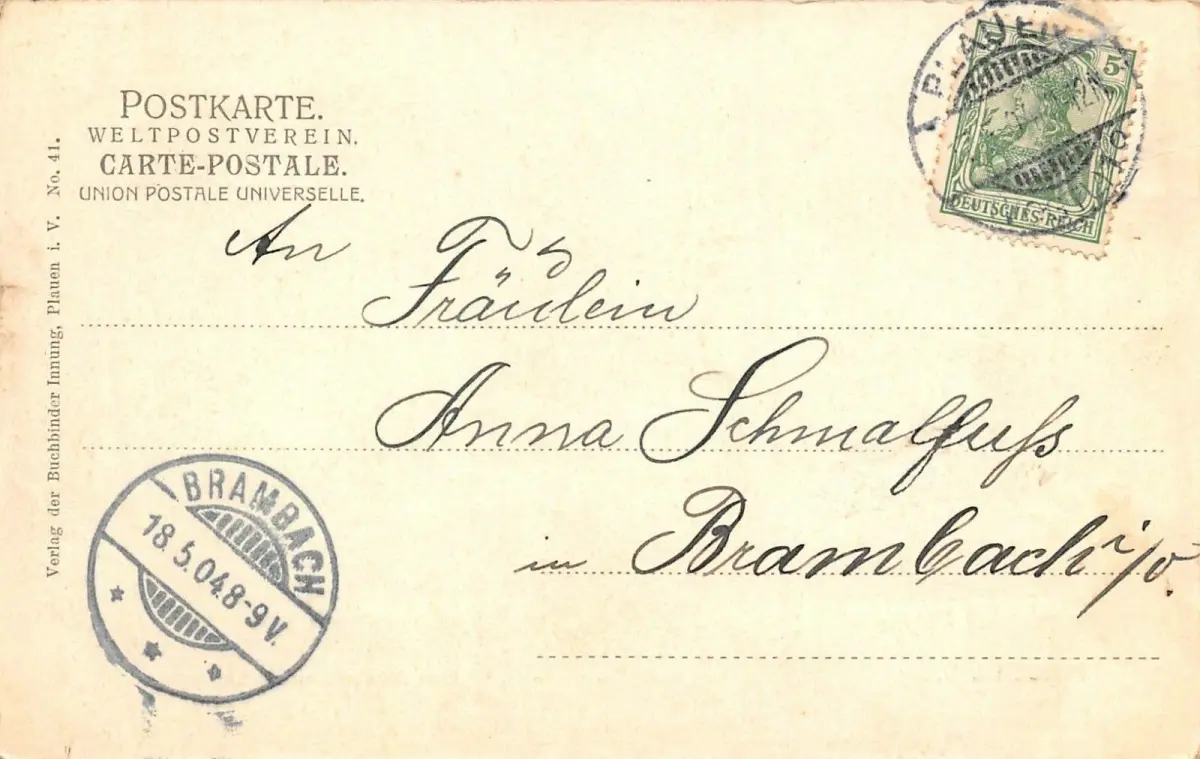 POSTKARTE.
WELTPOSTVEREIN.
CARTE-POSTALE.
UNION POSTALE UNIVERSELLE.
Verlag der Buchbinder Innung, Plauen i. V. No. 41.
PLAUEN
5
DEUTSCHES·REICH
An
Fräulein
Anna Schmalfuß
in Brambach i/v
BRAMBACH
18.5.04.8-9 V.